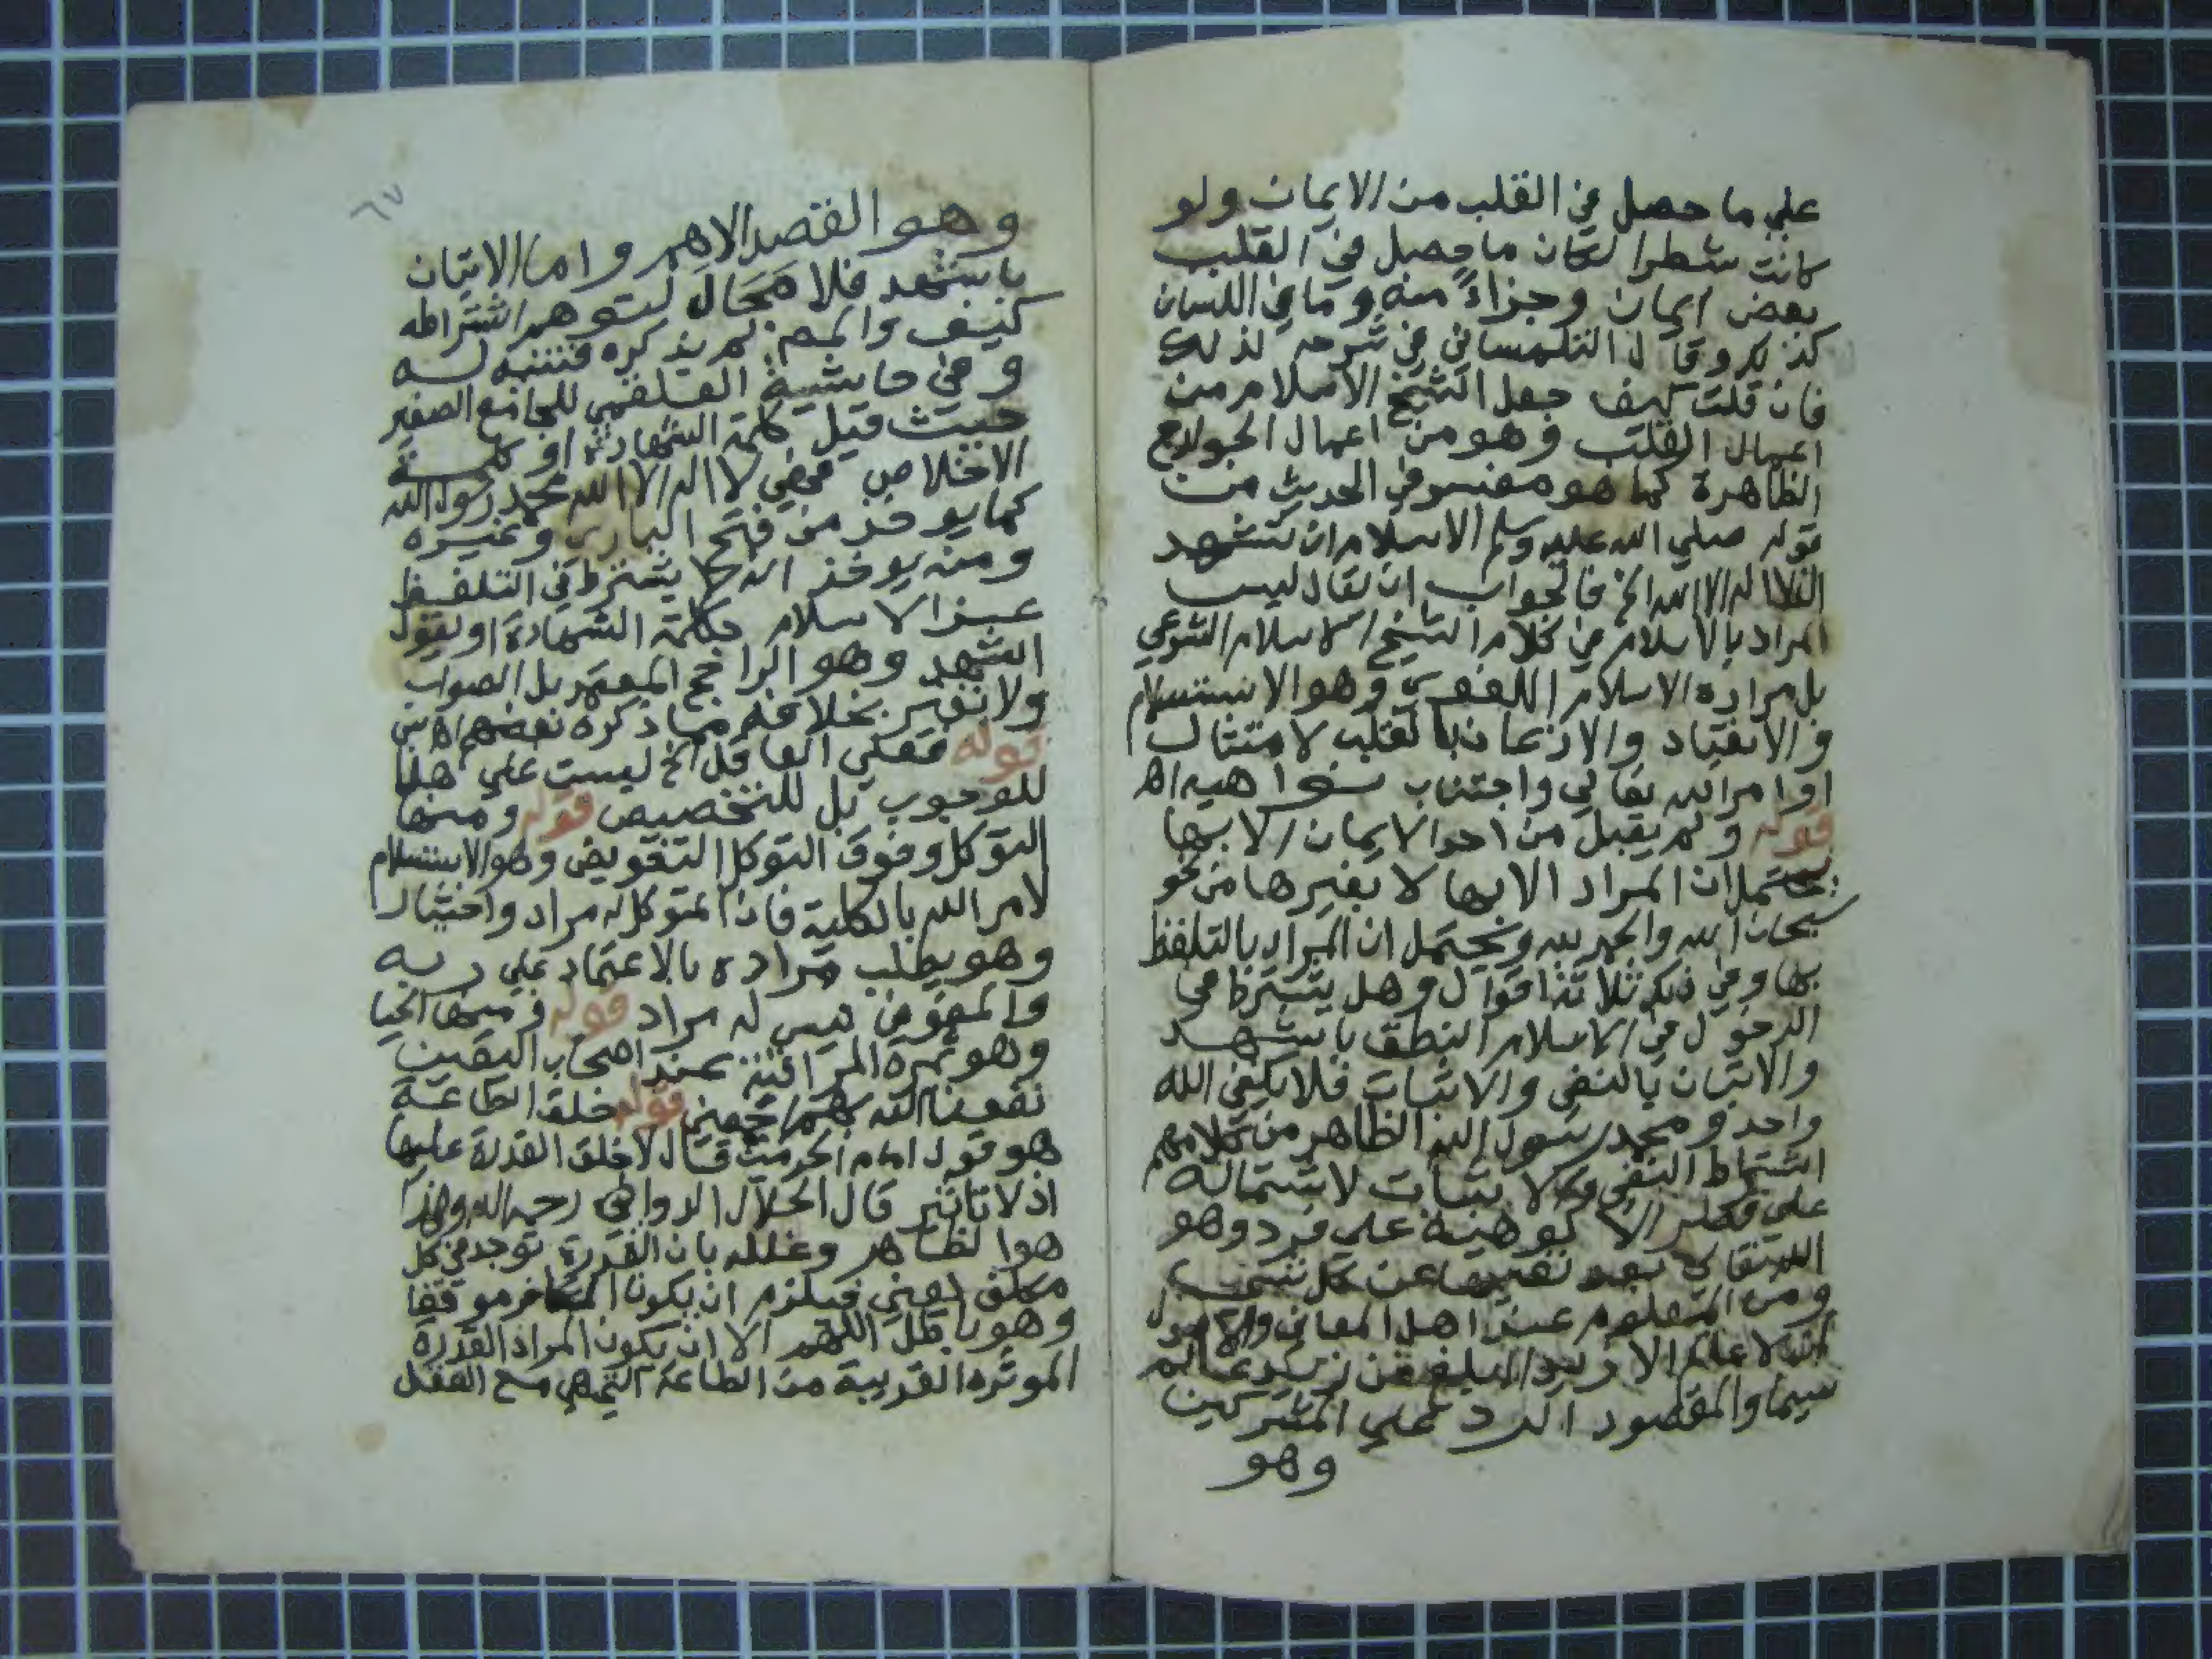 علي ما حصل في القلب من الايمان ولو
كانت شطرا لكان ما حصل في القلب
بعض ايمان وجزاءً منه وما في اللسان
كذلك وقال التلمساني في شرحه لذلك
فان قلت كيف جعل الشيخ الاسلام من
اعمال القلب وهو من اعمال الجوارح
الظاهرة كما هو مفسر في الحديث من
قوله صلي الله عليه وسلم الاسلام ان تشهد
ان لا اله الا الله الخ فالجواب ان يقال ليس
المراد بالاسلام في كلام الشيخ الاسلام الشرعي
بل مراده الاسلام اللغوي وهو الاستسلام
والانقياد والاذعان بالقلب لامتثال
اوامر الله تعالي واجتناب نواهيه اه
قوله ولم يقبل من احد الايمان الا بها
يحتمل ان المراد الا بها لا بغيرها من نحو
سبحان الله والحمد لله ويحتمل ان المراد بالتلفظ
بها وفي ذلك ثلاثة اقوال وهل يشترط في
الدخول في الاسلام النطق باشهد
والاتيان بالنفي والاثبات فلا يكفي الله
واحد ومحمد رسول الله الظاهر من كلامهم
اشتراط النفي والاثبات لاشتماله
علي قصر الالوهية علي فرد وهو
الله تعالي بعد نفيها عن كل
ومن المعلوم عند اهل المعاني والاصول
ان لا عالم الا زيد ابلغ من زيد عالم
سيما والمقصود الرد علي المشركين
وهو
٦٧
وهو القصد الاهم واما الاتيان
باشهد فلا مجال لتوهم اشتراطه
كيف والمص لم يذكره فتنبه له
وفي حاشية العلقمي للجامع الصغير
حيث قيل كلمة الشهادة او كلمة
الاخلاص فهي لا اله الا الله محمد رسول الله
كما يوخذ من فتح الباري وغيره
ومنه يوخذ انه لا يشترط في التلفظ
عند الاسلام بكلمة الشهادة او يقول
اشهد وهو الراجح المعتمد بل الصواب
ولا تغتر بخلافه مما ذكره بعضهم اه من
قوله فعلي العاقل الخ ليست علي هنا
للوجوب بل للتخصيص قوله ومنها
التوكل وفوق التوكل التفويض وهو الاستسلام
لامر الله بالكلية فان المتوكل له مراد واختيار
وهو يطلب مراده بالاعتماد علي ربه
والمفوض ليس له مراد قوله ومنها الحيا
وهو ثمرة المراقبة عند اصحاب اليقين
نفعنا الله بهم اجمعين قوله خلق الطاعة
هو قول امام الحرمين قال لا خلق القدرة عليها
اذ لا تاثير قال الجلال الدواني رحمه الله وهذا
هو الظاهر وعلله بان القدرة توجد في كل
مكلف يعني فيلزم ان يكون الكافر موفقا
وهو باطل اللهم الا ان يكون المراد القدرة
الموثره القريبة من الطاعة التي هي مع الفعل